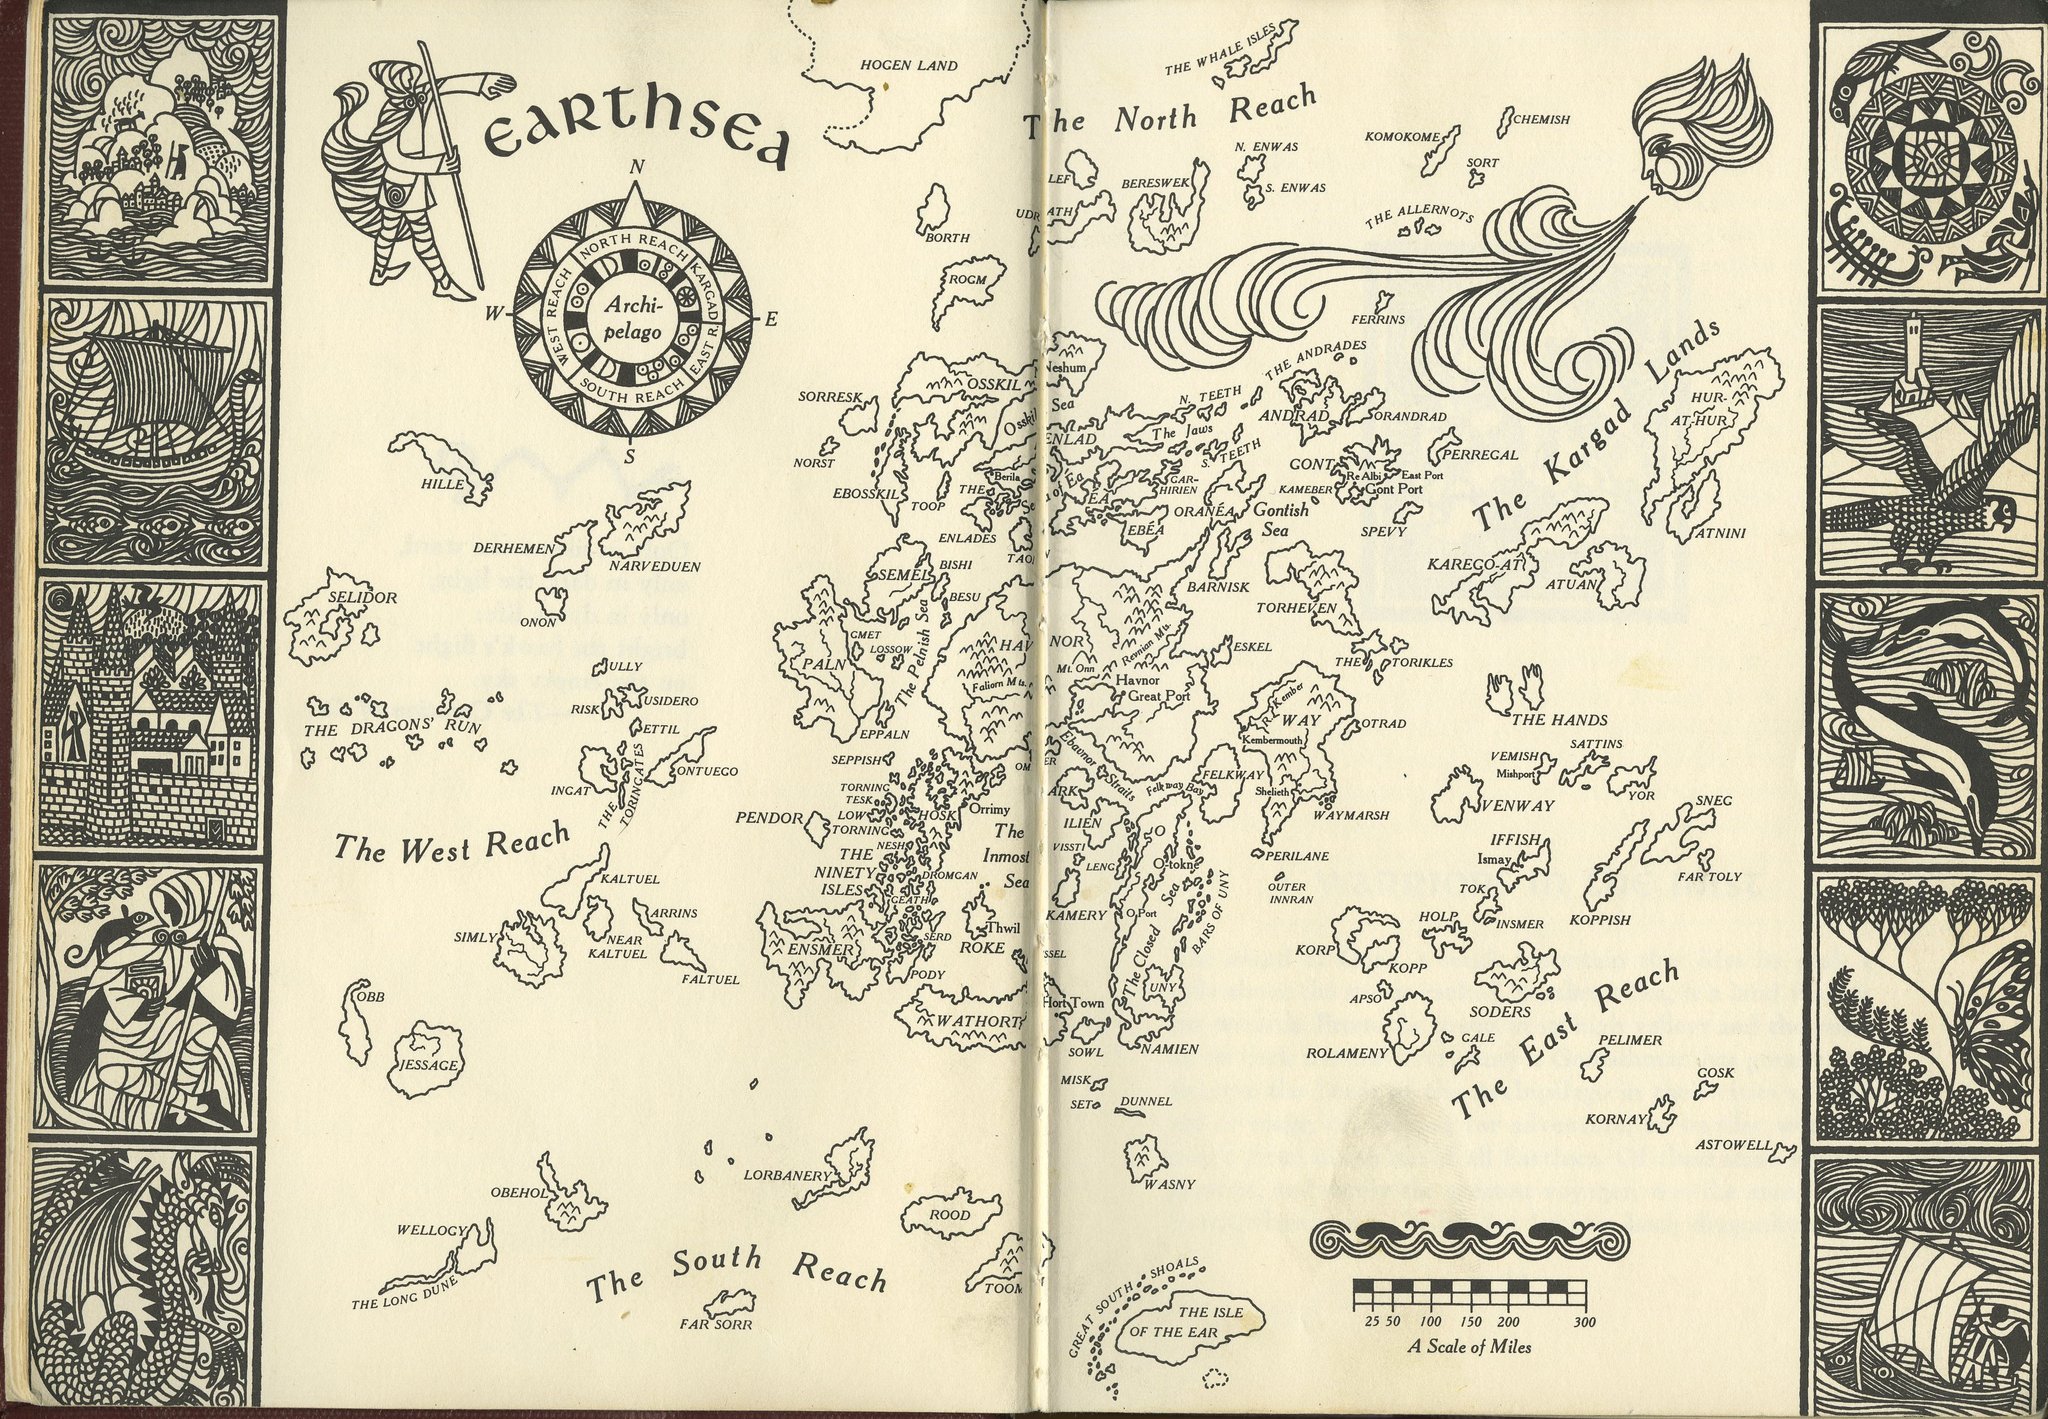 EARTHSEA
HOGEN LAND
THE WHALE ISLES
The North Reach
CHEMISH
KOMOKOME
SORT
N. ENWAS
S. ENWAS
LEF
BERESWEK
UDRATH
THE ALLERNOTS
BORTH
ROGM
FERRINS
N
W
E
S
NORTH REACH
KARGAD R.
EAST R.
SOUTH REACH
WEST REACH
Archi-
pelago
The Kargad Lands
HUR-
AT-HUR
ATNINI
KAREGO-AT
ATUAN
THE ANDRADES
ANDRAD
ORANDRAD
N. TEETH
The Jaws
S. TEETH
Neshum
Sea
OSSKIL
SORRESK
NORST
EBOSSKIL
TOOP
Berila
THE
ENLADES
ENLAD
ÉA
GAR-
HIRIEN
ORANÉA
EBÉA
TAON
GONT
Re Albi
East Port
Gont Port
KAMEBER
PERREGAL
SPEVY
Gontish
Sea
BARNISK
TORHEVEN
THE TORIKLES
HILLE
DERHEMEN
NARVEDUEN
ONON
SELIDOR
THE DRAGONS' RUN
ULLY
RISK
USIDERO
ETTIL
INGAT
THE
TORINGATES
ONTUEGO
SEMEL
BISHI
BESU
GMET
LOSSOW
The Pelnish Sea
PALN
EPPALN
HAVNOR
Faliorn Mts.
Mt. Onn
Revnian Mts.
Havnor
Great Port
ESKEL
R. Kember
WAY
Kembermouth
OTRAD
Shelieth
WAYMARSH
FELKWAY
Felkway Bay
Ebavnor Straits
THE HANDS
VEMISH
Mishport
SATTINS
YOR
VENWAY
SNEG
IFFISH
Ismay
FAR TOLY
KOPPISH
TOK
INSMER
HOLP
KORP
KOPP
APSO
SODERS
ROLAMENY
GALE
PELIMER
GOSK
KORNAY
ASTOWELL
The East Reach
PERILANE
OUTER
INNRAN
SEPPISH
TORNING
TESK
LOW
TORNING
HOSK
Orrimy
PENDOR
THE
NINETY
ISLES
NESH
DROMGAN
GEATH
SERD
PODY
The
Inmost
Sea
Thwil
ROKE
ENSMER
WATHORT
Hort Town
ARK
ILIEN
VISSTI
LENG
KAMERY
O
O-tokne
O Port
The Closed Sea
BARS OF UNY
UNY
NAMIEN
SOWL
MISK
SET
DUNNEL
WASNY
The West Reach
KALTUEL
NEAR
KALTUEL
ARRINS
FALTUEL
SIMLY
OBB
JESSAGE
OBEHOL
WELLOGY
THE LONG DUNE
The South Reach
LORBANERY
ROOD
TOOM
FAR SORR
GREAT SOUTH SHOALS
THE ISLE
OF THE EAR
25 50 100 150 200 300
A Scale of Miles